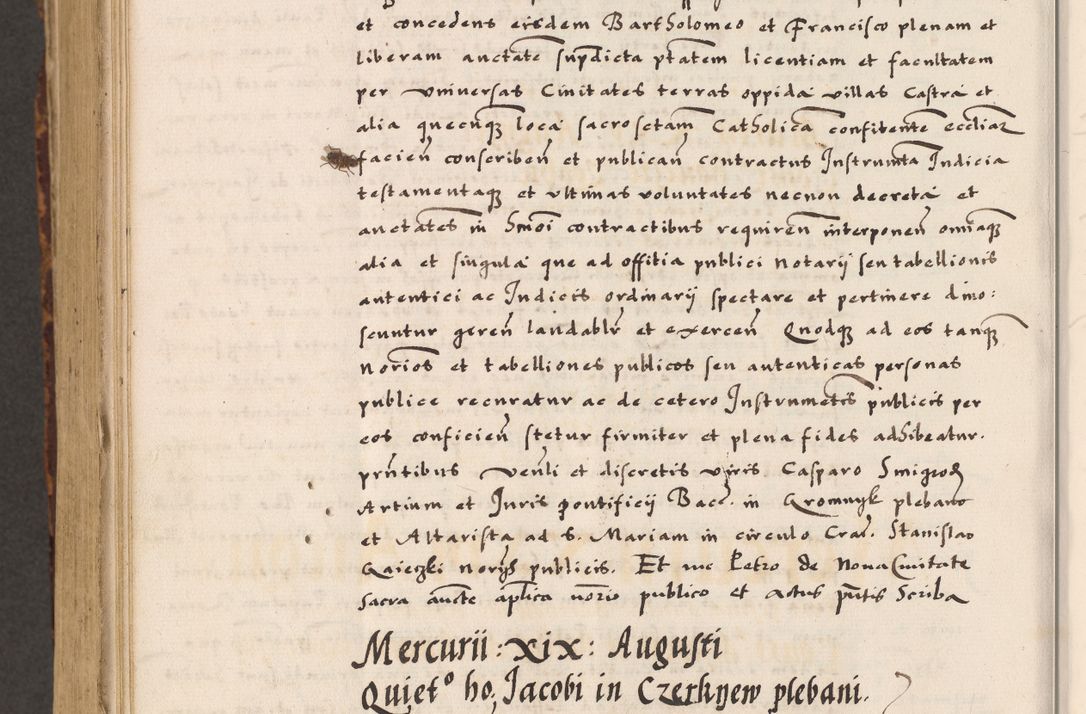 et concedens eisdem Bartholomeo et Francisco plenam et
liberam auctate supdicta ptatem licentiam et facultatem
per universas Civitates terras oppida villas Castra et
alia quecunqz loca sacrosctam Catholica confitente eccliaz
facien conscriben et publican contractus Instrumta Indicia
testamentaqz et ultimas voluntates necnon decreta et
auctates in hmoi contractibus requiren interponen omniaqz
alia et singula que ad offitia publici notarij seu tabellionis
autentici ac Iudicis ordinarij spectare et pertinere dino:
scuntur geren laudablr et exercen Quodqz ad eos tanqz
norios et tabelliones publicos seu autenticas personas
publice recuratur ac de cetero Instrumetis publicis per
eos conficien stetur firmiter et plena fides adhibeatur.
prntibus venli et discretis viris Casparo Smigrod
Artium et Iuris pontificij Bacc. in Gromnyk plebano
et Altarista ad S. Mariam in circulo Crac. Stanislao
Gaieczki norijs publicis. Et me Petro de Nova Civitate
sacra aucte aplica norio publico et actus pntis Scriba
Mercurii : xix : Augusti
Quiet° ho: Jacobi in Czerknew plebani.